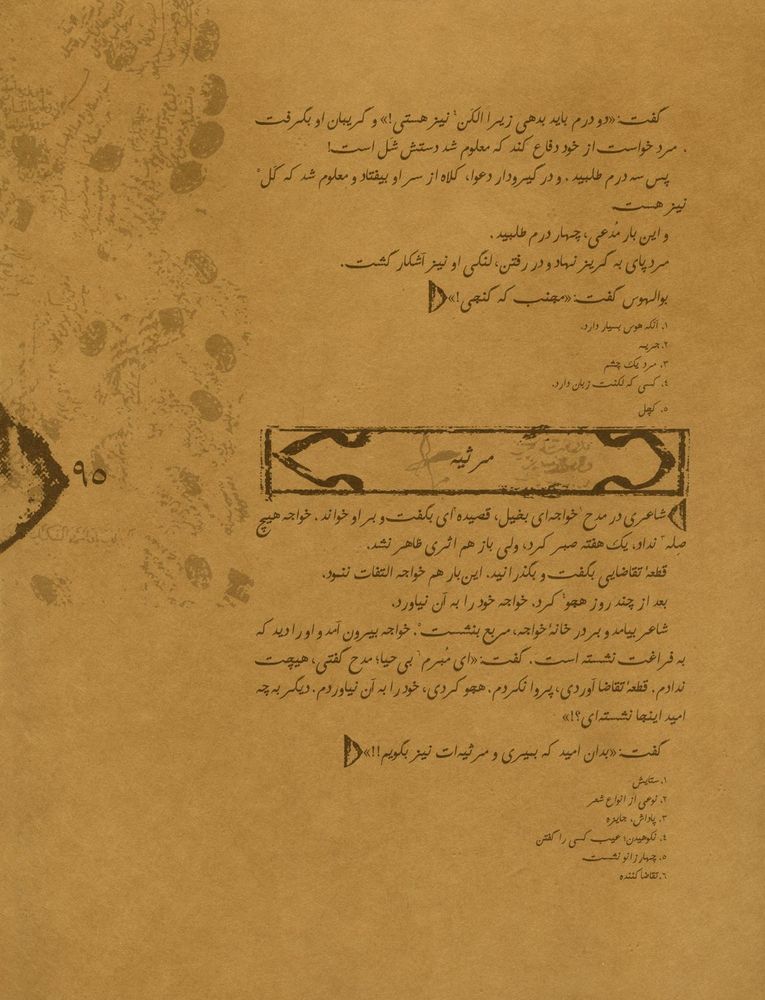 گفت: «دو درم باید بدهی زیرا الکن⁴ نیز هستی!» و گریبان او بگرفت
. مرد خواست از خود دفاع کند که معلوم شد دستش شل است!
پس سه درم طلبید. و در گیرودار دعوا، کلاه از سر او بیفتاد و معلوم شد که کَل⁵
نیز هست
و این بار مُدعی، چهار درم طلبید.
مرد پای به گریز نهاد و در رفتن، لنگی او نیز آشکار گشت.
بوالهوس گفت: «مجنب که گنجی!»
۱. آنکه هوس بسیار دارد.
۲. جریمه
۳. مرد یک چشم
۴. کسی که لکنت زبان دارد.
۵. کچل
مرثیه
۹۵
شاعری در مدح¹ خواجه‌ای بخیل، قصیده²‌ای بگفت و بر او خواند. خواجه هیچ
صِله³ نداد، یک هفته صبر کرد، ولی باز هم اثری ظاهر نشد.
قطعهٔ تقاضایی بگفت و بگذرانید. این بار هم خواجه التفات ننمود.
بعد از چند روز هجو⁴ کرد. خواجه خود را به آن نیاورد.
شاعر بیامد و بر در خانهٔ خواجه، مربع بنشست⁵. خواجه بیرون آمد و او را دید که
به فراغت نشسته است. گفت: «ای مُبرم⁶ بی حیا؛ مدح گفتی، هیچت
ندادم. قطعهٔ تقاضا آوردی، پروا نکردم. هجو کردی، خود را به آن نیاوردم. دیگر به چه
امید اینجا نشسته‌ای؟!»
گفت: «بدان امید که بمیری و مرثیه‌ات نیز بگویم!!»
۱. ستایش
۲. نوعی از انواع شعر
۳. پاداش، جایزه
۴. نکوهیدن؛ عیب کسی را گفتن
۵. چهار زانو نشست
۶. تقاضا کننده